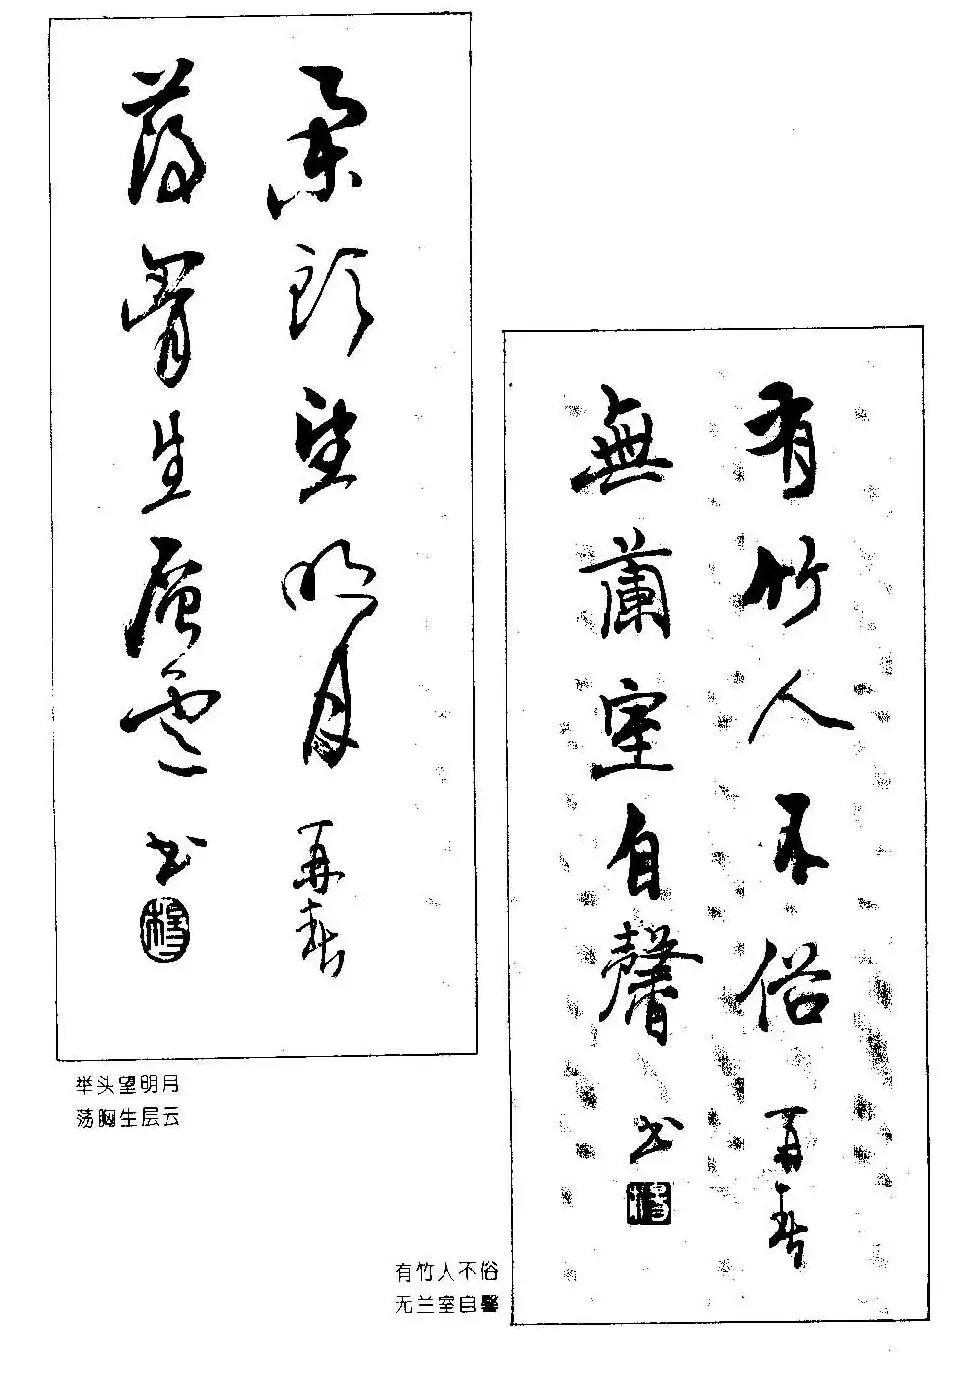 举头望明月
荡胸生层云
再新
书
举头望明月
荡胸生层云
有竹人不俗
無蘭室自馨
再新
书
有竹人不俗
无兰室自馨